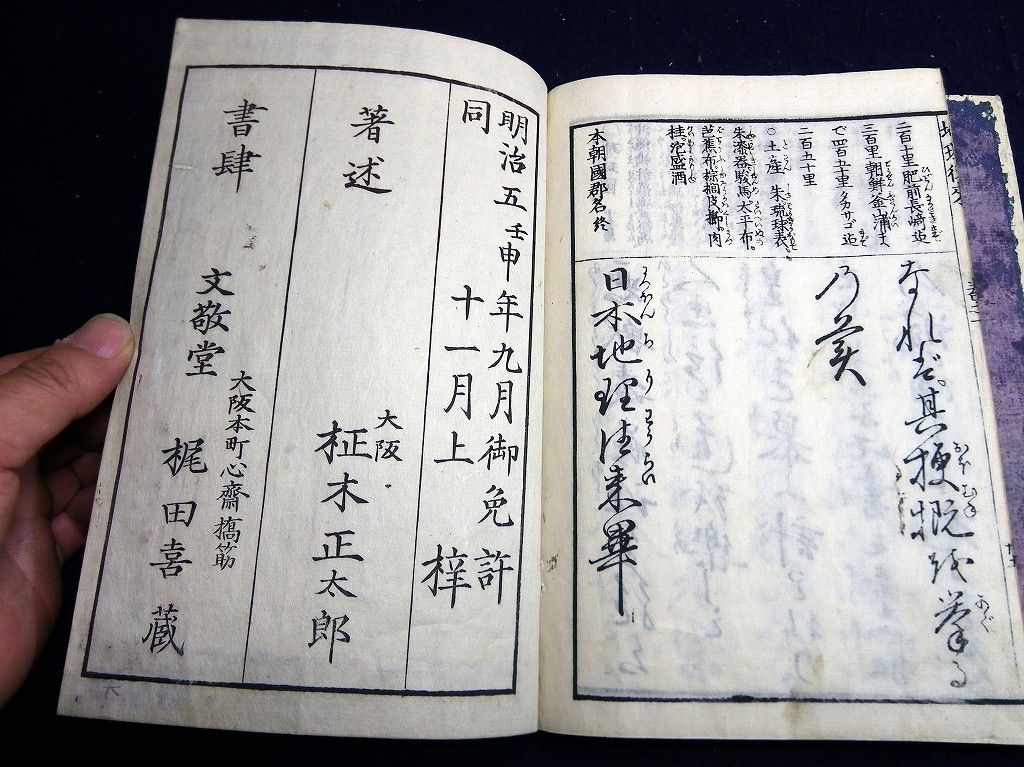 二百十里肥前長崎迄
三百里朝鮮釜山浦ま
で四百五十里タカサゴ迄
二百五十里
○土産 朱琉球表
朱漆器駿馬太平布
芭蕉布棕梠皮
桂泡盛酒
本朝國郡名終
なれば其梗概を挙る
乃矣
日本地理往来畢
明治五壬申年九月御免許
同 十一月上梓
著述
大阪
柾木正太郎
書肆
大阪本町心齋橋筋
文敬堂 梶田喜蔵